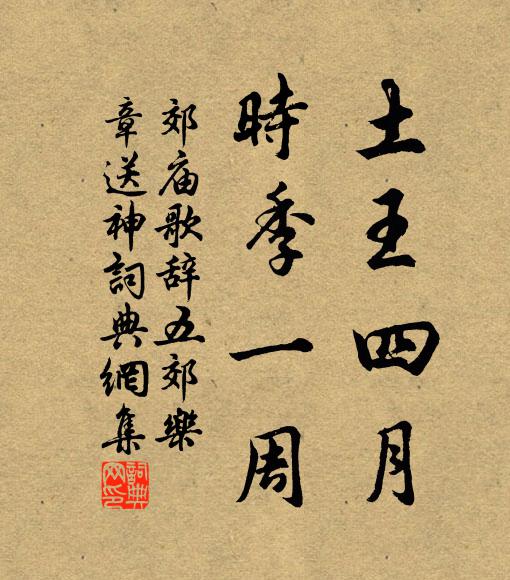 土王四月
時季一周
郊庙歌辞五郊樂
章送神詞典網集
詞典网印